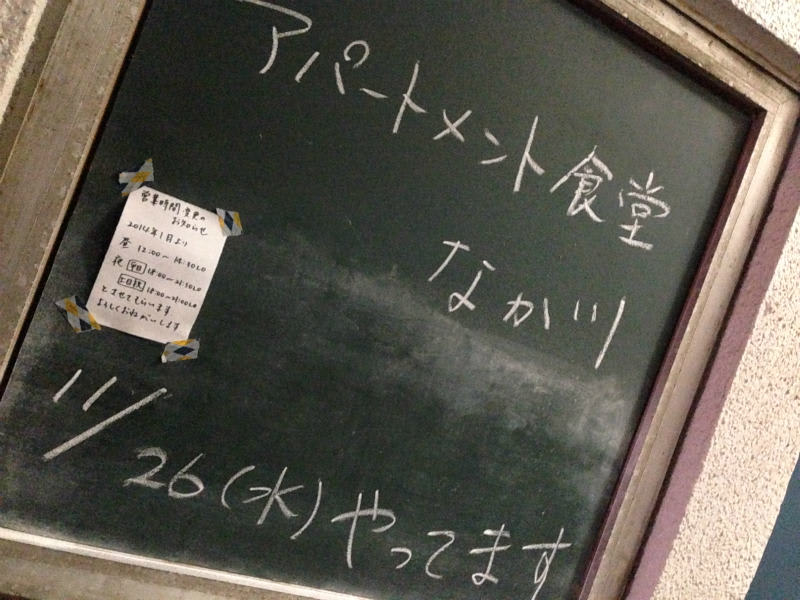 アパートメント食堂
なか川
営業時間変更の
お知らせ
2014年1月より
昼 12:00〜14:30LO
夜 平日 18:00〜21:30LO
土日祝 18:00〜21:00LO
とさせてもらいます
よろしくおねがいします
11/26(水)やってます